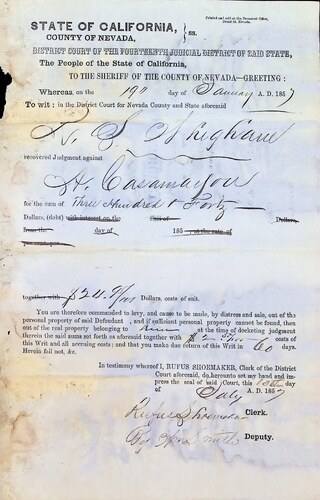 Printed and sold at the Democrat Office,
STATE OF CALIFORNIA,
COUNTY OF NEVADA, } ss.
DISTRICT COURT OF THE FOURTEENTH JUDICIAL DISTRICT OF SAID STATE,
The People of the State of California,
TO THE SHERIFF OF THE COUNTY OF NEVADA—GREETING:
Whereas, on the 19" day of January A. D. 1857
To wit: in the District Court for Nevada County and State aforesaid
S.
recovered Judgment against
H. Casamayou
for the sum of Three Hundred & Forty
Dollars, (debt) with interest on the Sum of Dollars,
from the day of 185 , at the rate of
per cent. per an.
together with $24 Dollars, costs of suit.
You are therefore commanded to levy, and cause to be made, by distress and sale, out of the
personal property of said Defendant , and if sufficient personal property cannot be found, then
out of the real property belonging to him at the time of docketing judgment
therein the said sums set forth as aforesaid together with $2 costs of
this Writ and all accruing costs: and that you make due return of this Writ in 60 days.
Herein fail not, &c.
In testimony whereof I, RUFUS SHOEMAKER, Clerk of the District
Court aforesaid, do hereunto set my hand and im-
press the seal of said Court, this day
of July A. D. 1857
Rufus Shoemaker Clerk.
By Smith Deputy.